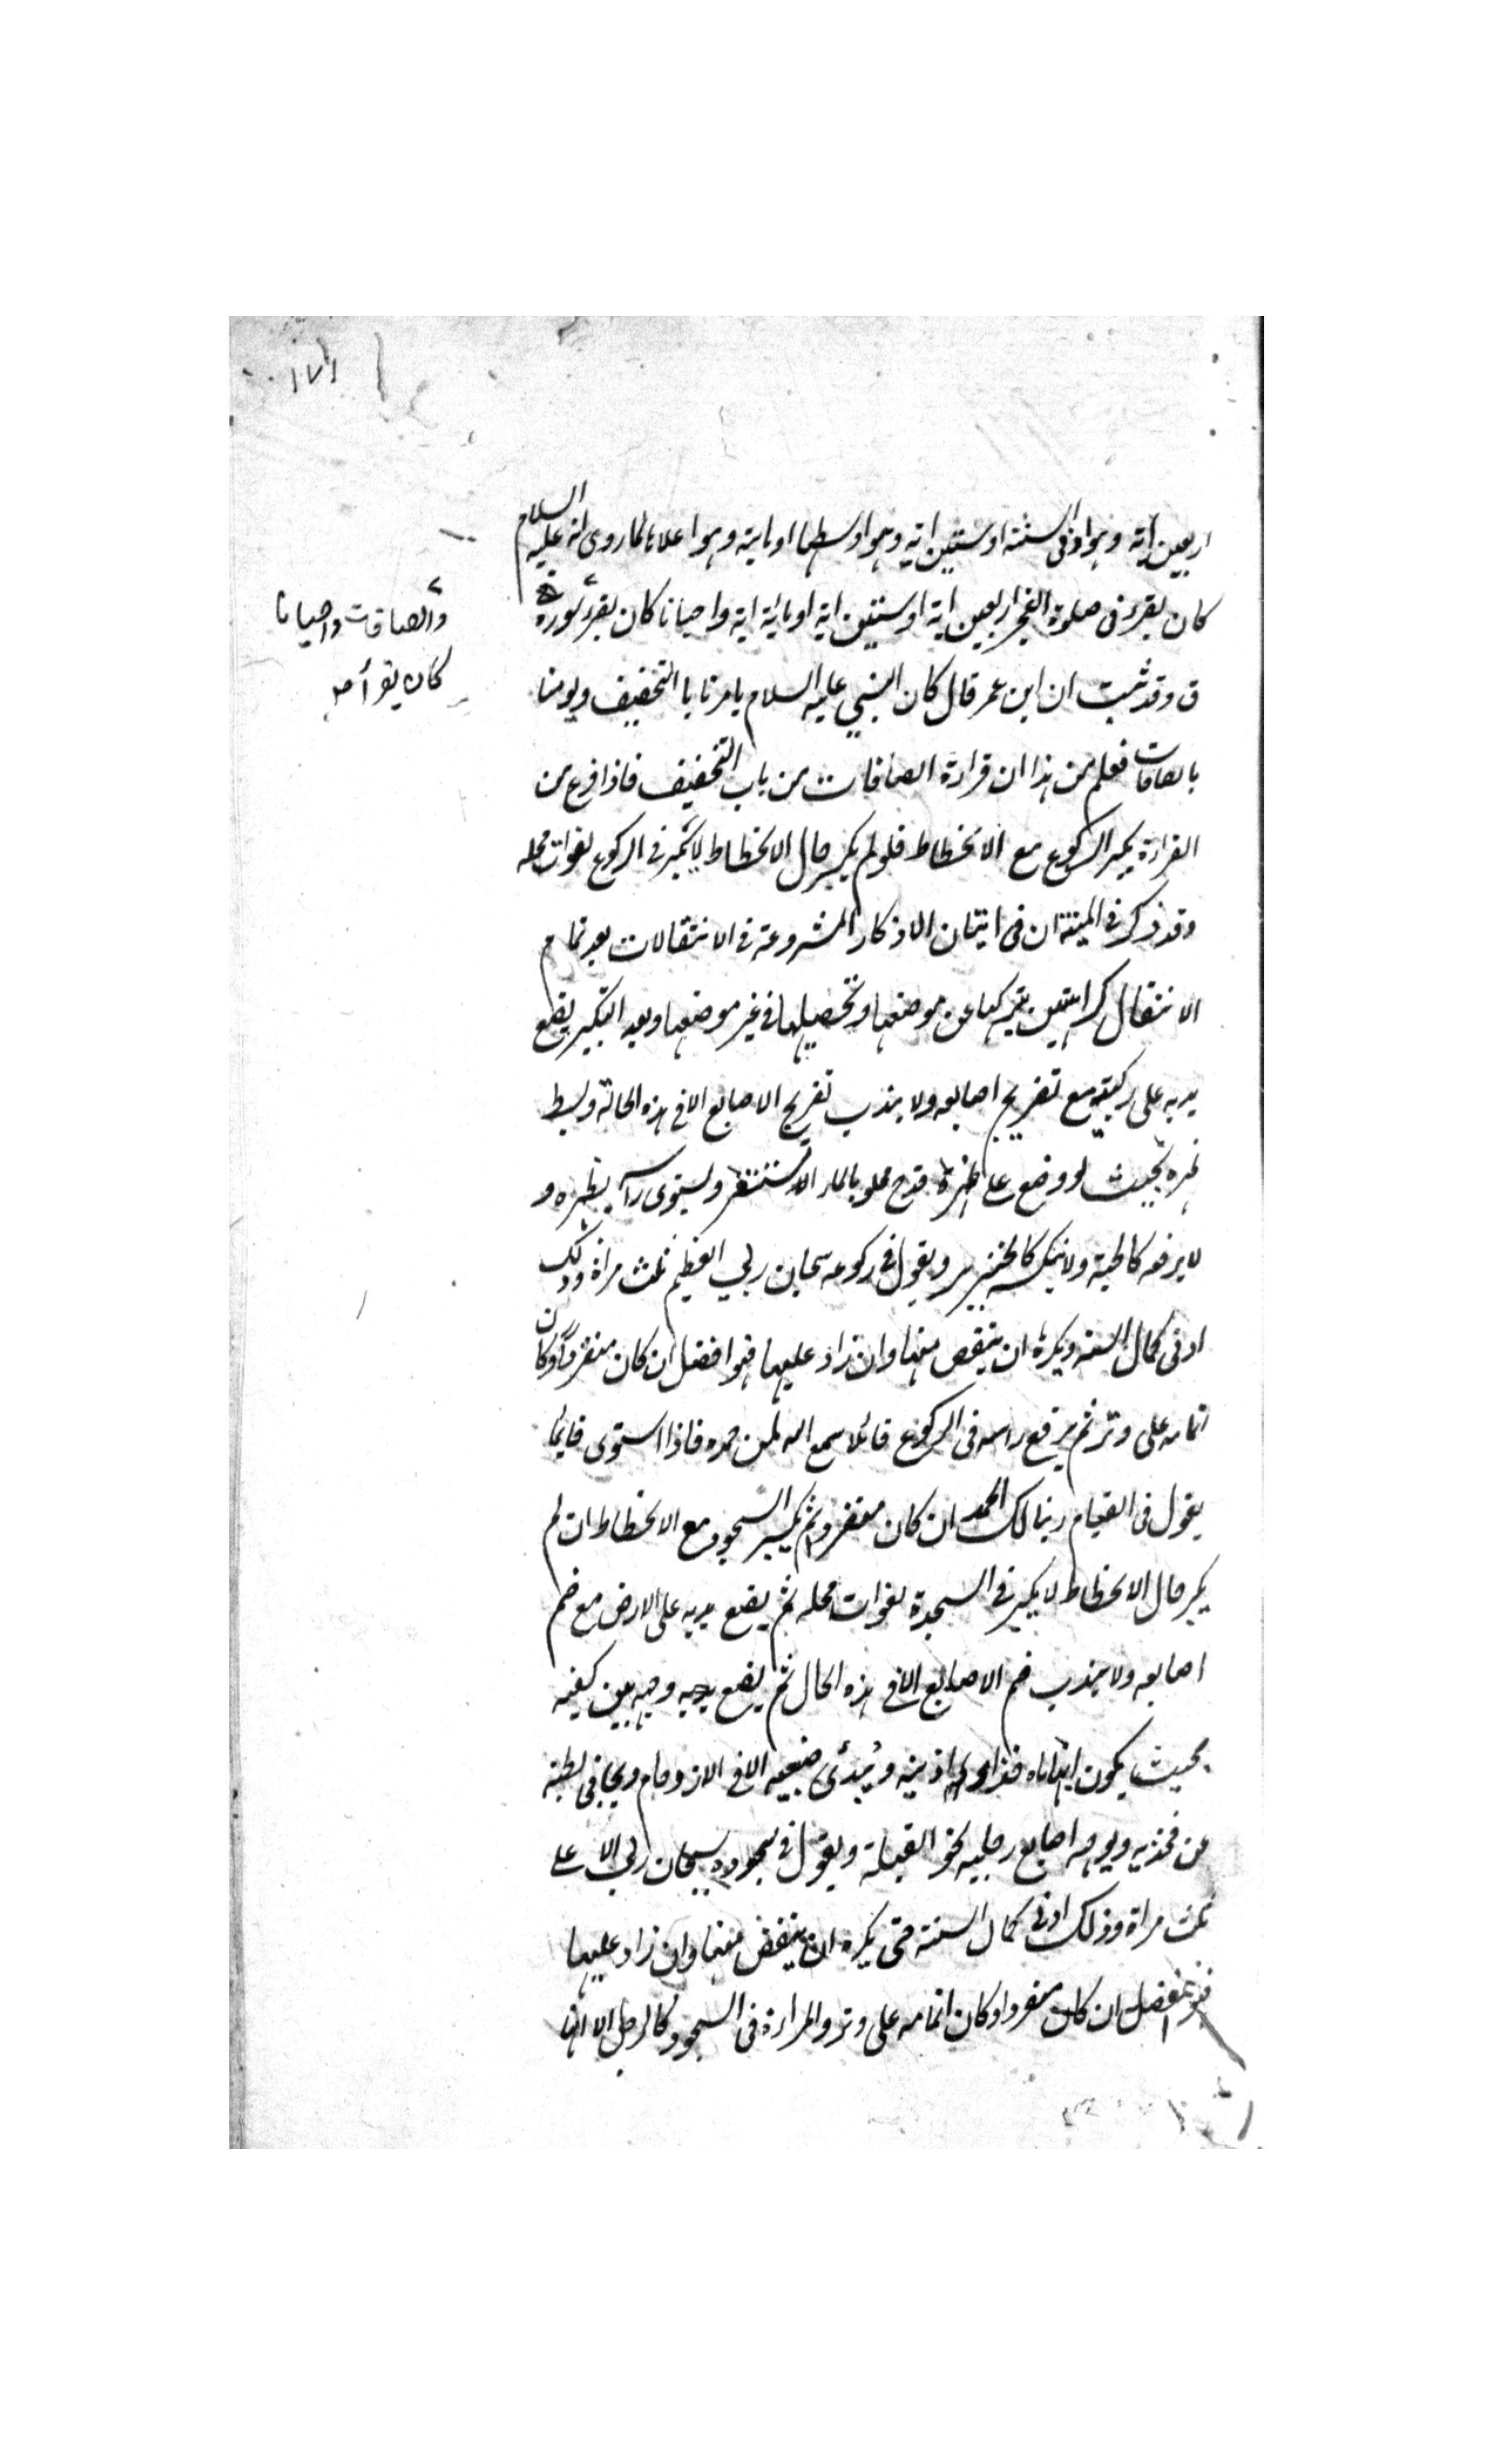 ١٧١
اربعين اية وهو ادنى السنة او ستين اية وهو اوسطها او ماية وهو اعلاها لما روى انه عليه السلام
كان يقرء فى صلوة الفجر اربعين اية او ستين اية او ماية اية واحيانا كان يقرء سورة
والصافات واحيانا
كان يقرأ
ق وقد ثبت ان ابن عمر قال كان النبي عليه السلام يامرنا با التخفيف ويومنا
بالصافات فعلم من هذا ان قراءة الصافات من باب التخفيف فاذا فرغ من
القراءة يكبر الركوع مع الانحطاط فلو لم يكبر حال الانحطاط لا يكبر في الركوع لفوات محله
وقد ذكر في المنية ان فى اتيان الاذكار المشروعة في الانتقالات بعد تمام
الانتقال كراهتين بتركها عن موضعها وتحصيلها في غير موضعها وبعد التكبير يضع
يديه على ركبتيه مع تفريج اصابعه ولا يندب تفريج الاصابع الا في هذه الحالة وبسط
ظهره بحيث لو وضع على ظهره قدح مملو بالماء لاستقر ويستوى راسه بظهره و
لا يرفعه كالحية ولا ينكسه كالخنزير ويقول في ركوعه سبحان ربي العظيم ثلث مراة وذلك
ادنى كمال السنة ويكره ان ينقص منها وان زاد عليها فهو افضل ان كان منفردا وكان
اتمامه على وتر ثم يرفع راسه فى الركوع قائلا سمع الله لمن حمده فاذا استوى قايما
يقول فى القيام ربنا لك الحمد ان كان منفردا ثم يكبر السجود مع الانحطاط ان لم
يكبر حال الانحطاط لا يكبر في السجدة لفوات محله ثم يضع يديه على الارض مع ضم
اصابعه ولا يندب ضم الاصابع الا في هذه الحال ثم يضع وجهه بين كفيه
بحيث يكون ابهاماه حذاء اذنيه ويبدئ ضبعيه الا في الازدحام ويجافى بطنه
عن فخذيه ويوجه اصابع رجليه نحو القبلة ويقول في سجوده سبحان ربي الاعلى
ثلث مراة وذلك ادنى كمال السنة حتى يكره ان ينقض منها وان زاد عليها
فهو افضل ان كان منفردا وكان اتمامه على وتر والمراءة فى السجود كالرجل الا انها